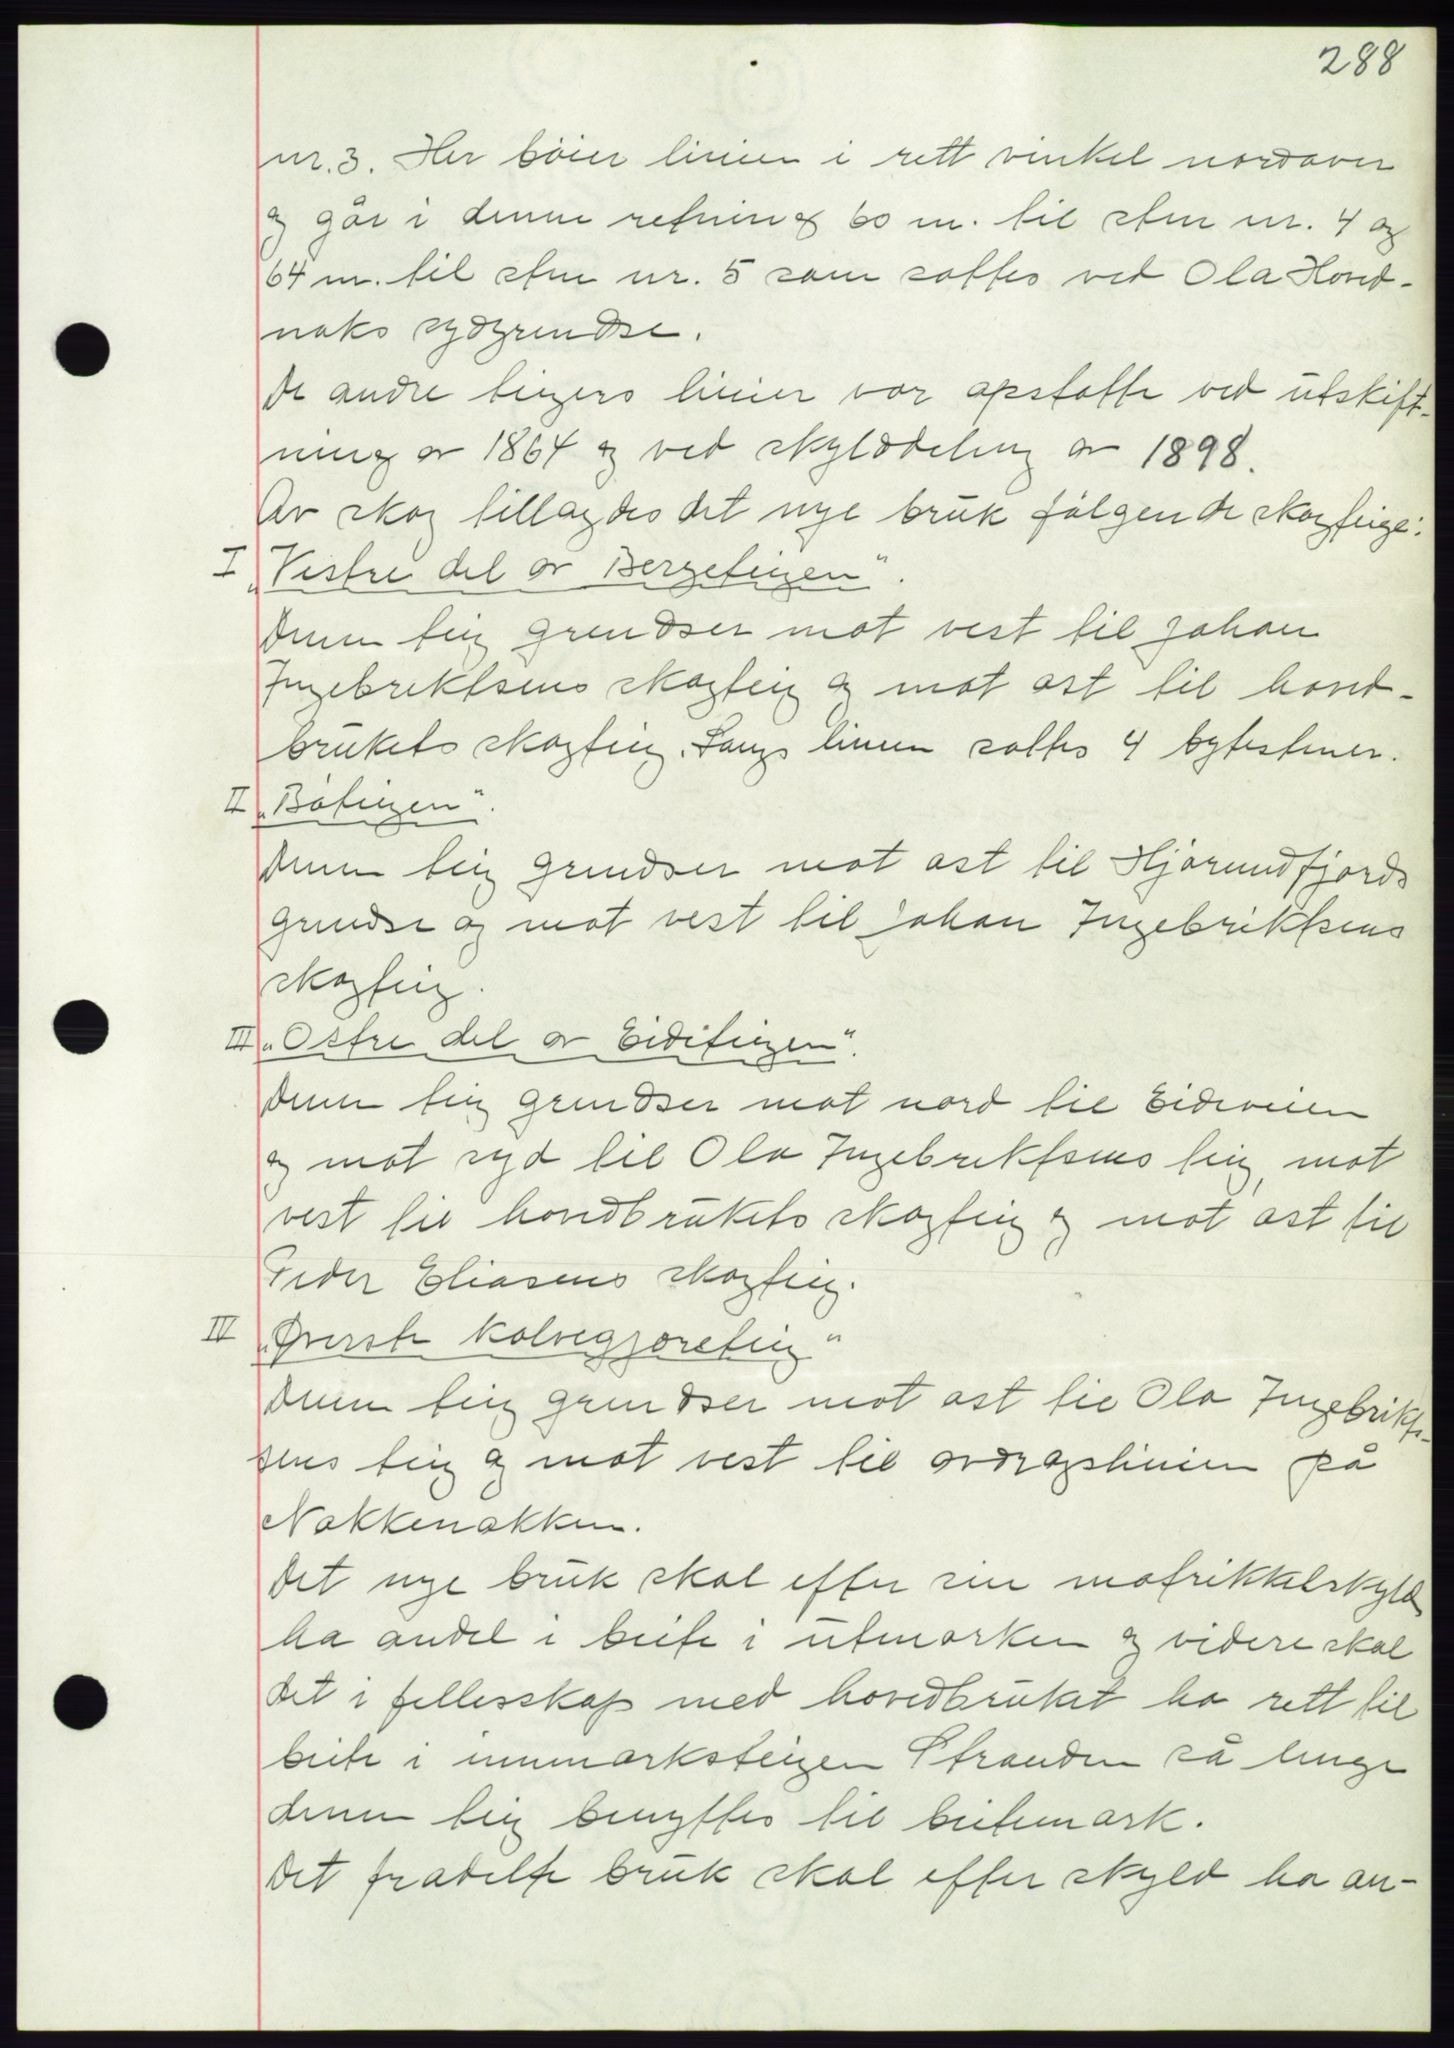 288
nr. 3. Her bøier linien i rett vinkel nordover
og går i denne retning 60 m. til sten nr. 4 og
64 m. til sten nr. 5 som sattes ved Ola Hovd-
naks sydgrendse.
De andre teigers linier var opstatte ved utskift-
ning av 1864 og ved skylddeling av 1898.
Av skog tillagdes det nye bruk følgende skogteige:
I „Vestre del av Bergeteigen“.
Denne teig grendser mot vest til Johan
Ingebriktsens skogteig og mot øst til hoved-
brukets skogteig. Langs linien sattes 4 bytestener.
II „Bøteigen“.
Denne teig grendser mot øst til Hjørundfjords
grendse og mot vest til Johan Ingebriktsens
skogteig.
III „Østre del av Eiditeigen“.
Denne teig grendser mot nord til Eideveien
og mot syd til Ola Ingebriktsens teig, mot
vest til hovedbrukets skogteig og mot øst til
Peder Eliasens skogteig.
IV „Øverste Kalvegjøreteig“
Denne teig grendser mot øst til Ola Ingebrikt-
sens teig og mot vest til avdragslinien på
Nakkenakken.
Det nye bruk skal efter sin matrikkelskyld
ha andel i beite i utmarken og videre skal
det i fellesskap med hovedbruket ha rett til
beite i innmarksteigen Stranden så lenge
denne teig benyttes til beitemark.
Det fradelte bruk skal efter skyld ha an-